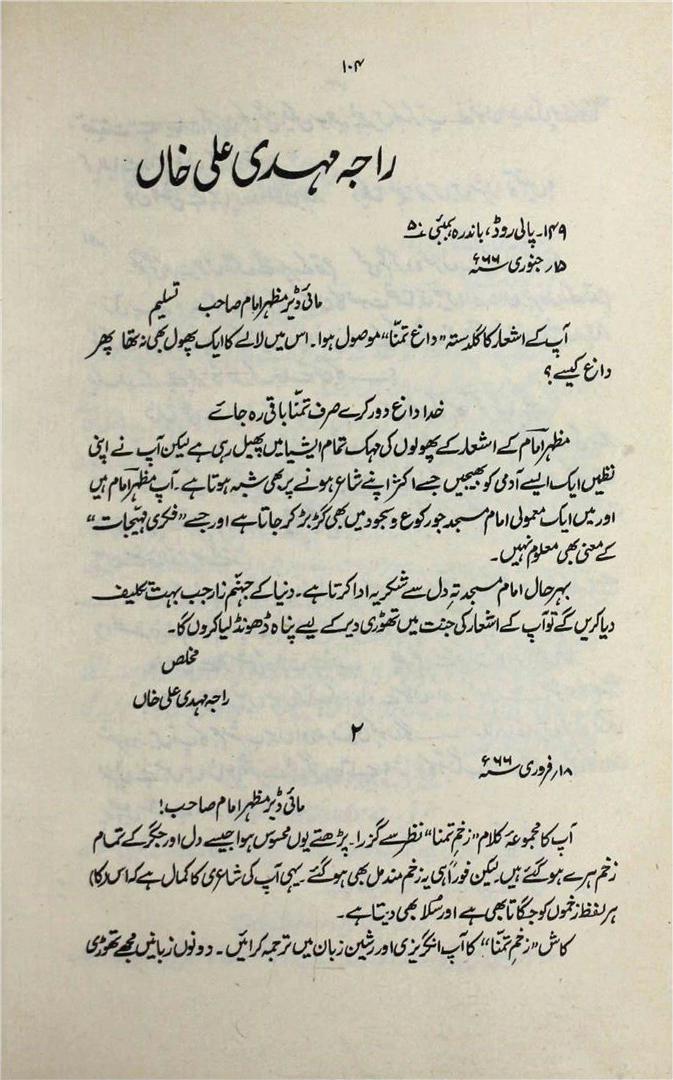 ۱۰۴
راجہ مہدی علی خاں
۱۴۹۔ پالی روڈ، باندرہ بمبئی نمبر ۵۰
۱۵؍ جنوری سنہ ۶۶ء
مائی ڈیر مظہر امام صاحب تسلیم
آپ کے اشعار کا گلدستہ "داغِ تمنّا" موصول ہوا۔ اس میں لالے کا ایک پھول بھی نہ تھا پھر
داغ کیسے؟
خدا داغ دور کرے صرف تمنّا باقی رہ جائے
مظہر امام کے اشعار کے پھولوں کی مہک تمام ایشیا میں پھیل رہی ہے لیکن آپ نے اپنی
نظمیں ایک ایسے آدمی کو بھیجیں جسے اکثر اپنے شاعر ہونے پر بھی شبہ ہوتا ہے۔ آپ مظہر امام ہیں
اور میں ایک معمولی امام مسجد جو رکوع و سجود میں بھی گڑبڑ کر جاتا ہے اور جسے "فکری مہیجات"
کے معنی بھی معلوم نہیں۔
بہرحال امام مسجد تہِ دل سے شکریہ ادا کرتا ہے۔ دنیا کے جہنّم زار جب بہت تکلیف
دیا کریں گے تو آپ کے اشعار کی جنت میں تھوڑی دیر کے لیے پناہ ڈھونڈ لیا کروں گا۔
مخلص
راجہ مہدی علی خاں
۲
۱۸؍ فروری سنہ ۶۶ء
مائی ڈیر مظہر امام صاحب!
آپ کا مجموعۂ کلام "زخمِ تمنا" نظر سے گزرا۔ پڑھتے یوں محسوس ہوا جیسے دل اور جگر کے تمام
زخم ہرے ہو گئے ہیں لیکن فوراً ہی یہ زخم مندمل بھی ہو گئے۔ یہی آپ کی شاعری کا کمال ہے کہ اس (کا)
ہر لفظ زخموں کو جگاتا بھی ہے اور سُلا بھی دیتا ہے۔
کاش "زخمِ تمنّا" کا آپ انگریزی اور رشین زبان میں ترجمہ کرائیں۔ دونوں زبانیں مجھے تھوڑی